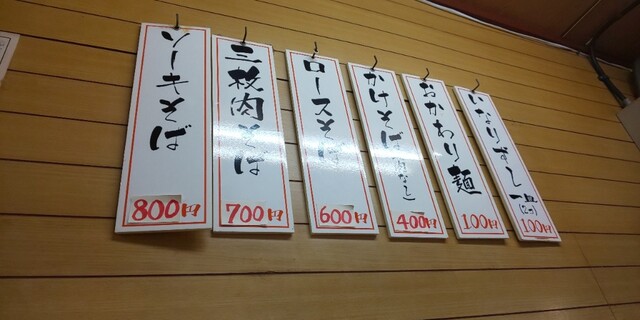 ソーキそば
800円
三枚肉そば
700円
ロースそば
600円
かけそば(肉なし)
400円
おかわり麺
100円
いなりずし一皿
100円